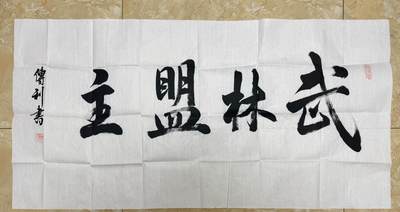 武林盟主
傅利書